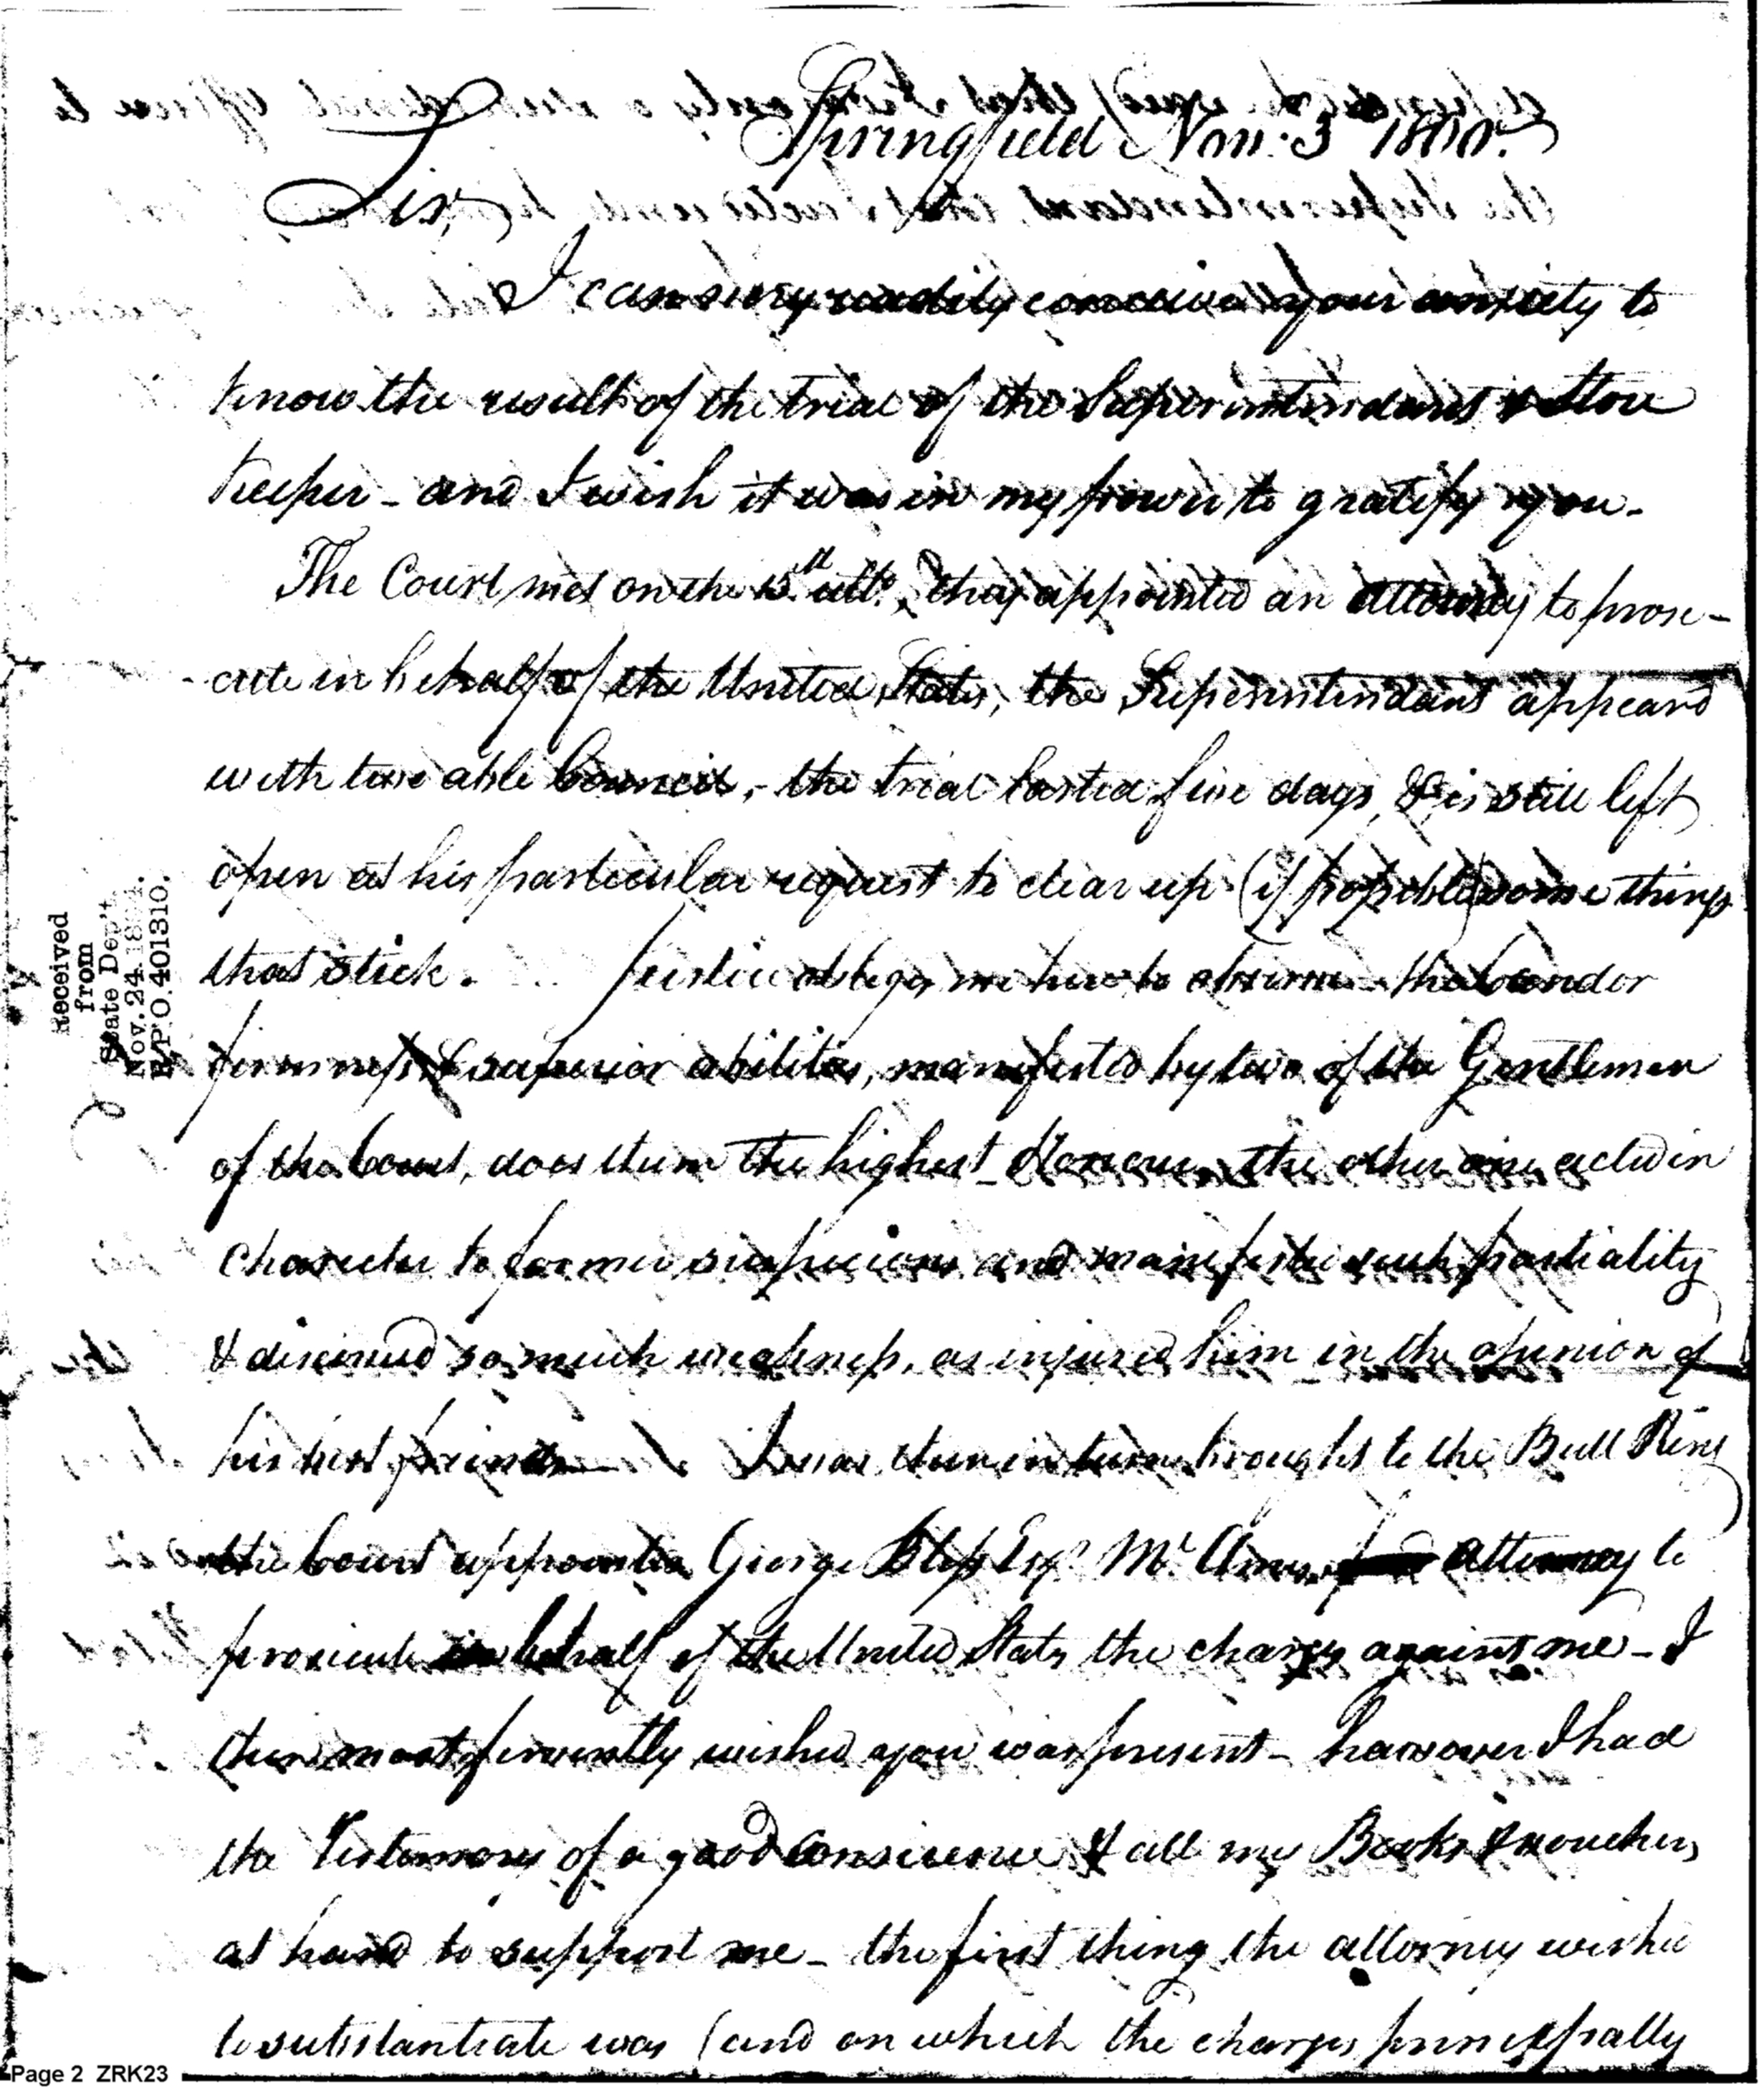 Springfield Nov: 3d 1800.
Sir,
I can very readily conceive your anxiety to
know the result of the trial of the Superintendant & Store
keeper - and I wish it was in my power to gratify you -
The Court met on the 13th ulto, they appointed an attorney to prose-
cute in behalf of the United States, the Superintendant appeard
with two able Council, - the trial lasted five days, & is still left
open at his particular request to clear up (if possible) some things
that stick. Justice obliges me here to observe the Candor
firmness & superior abilities, manifested by two of the Gentlemen
of the Court, does them the highest Honour - the other one acted in
character to former suspicions and manifested such partiality
& discovered so much weakness, as injured him in the opinion of
his best friends - I was then in turn brought to the Bull Ring
the Court appointed George Bliss Esqr. Mr. Ames attorney to
prosecute in behalf of the United States the charges against me - I
then most fervently wished you was present - however I had
the Testimony of a good Conscience & all my Books & vouchers
at hand to support me - the first thing the attorney wished
to substantiate was (and on which the charges principally
Received
from
State Dep't
Nov. 24. 18
R.P.O. 401310.
Page 2 ZRK23